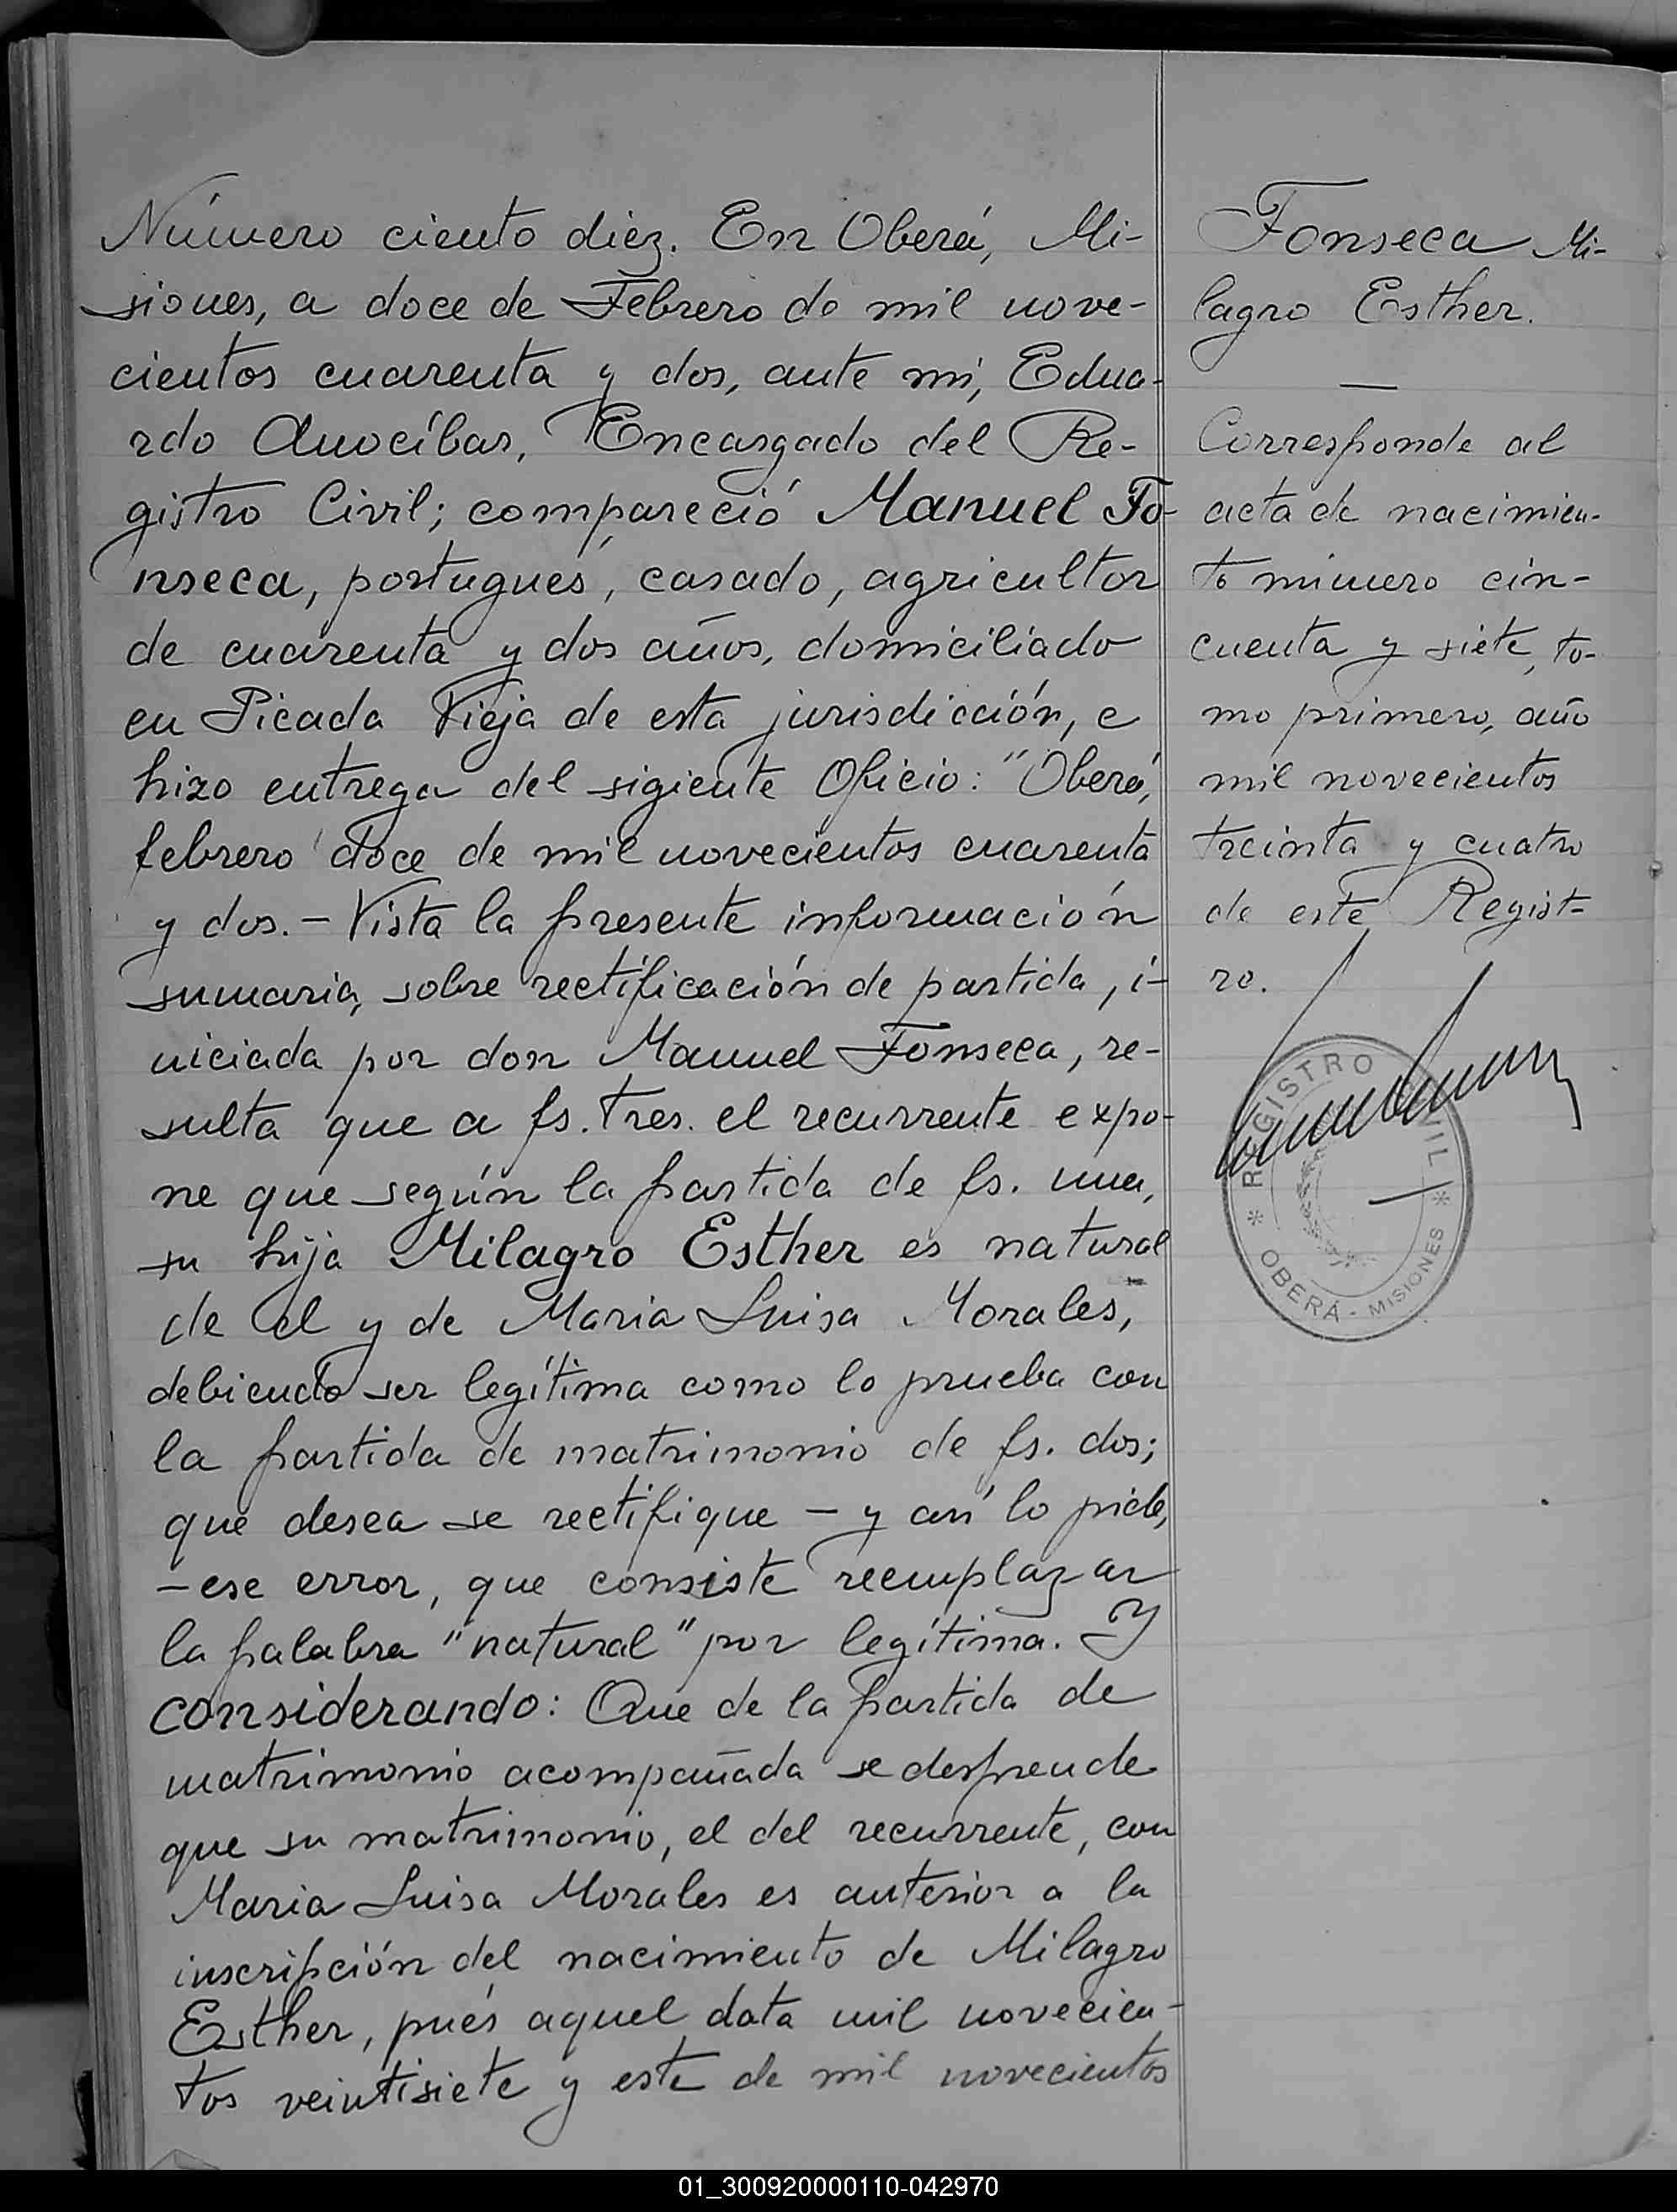 Número ciento diez. En Oberá, Mi-
siones, a doce de Febrero de mil nove-
cientos cuarenta y dos, ante mí, Edua-
rdo Anocíbar, Encargado del Re-
gistro Civil; compareció Manuel Fo-
nseca, portugués, casado, agricultor
de cuarenta y dos años, domiciliado
en Picada Vieja de esta jurisdicción, e
hizo entrega del sigiente Oficio: "Oberá,
febrero doce de mil novecientos cuarenta
y dos.- Vista la presente información
sumaria, sobre rectificación de partida, i-
niciada por don Manuel Fonseca, re-
sulta que a fs. tres. el recurrente expo-
ne que según la partida de fs. una,
su hija Milagro Esther es natural
de el y de Maria Luisa Morales,
debiendo ser legítima como lo prueba con
la partida de matrimonio de fs. dos;
que desea se rectifique - y así lo pide,
- ese error, que consiste reemplazar
la palabra "natural" por legítima. Y
considerando: Que de la partida de
matrimonio acompañada se desprende
que su matrimonio, el del recurrente, con
Maria Luisa Morales es anterior a la
inscripción del nacimiento de Milagro
Esther, pués aquel data mil novecien-
tos veintisiete y este de mil novecientos
Fonseca Mi-
lagro Esther.
—
Corresponde al
acta de nacimien-
to número cin-
cuenta y siete, to-
mo primero, año
mil novecientos
treinta y cuatro
de este Regist-
ro.
REGISTRO CIVIL
* OBERÁ - MISIONES *
01_300920000110-042970